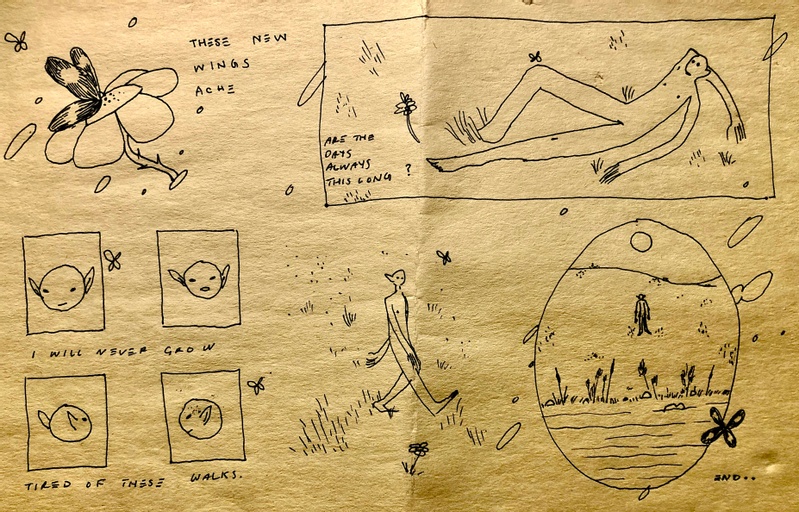 THESE NEW
WINGS
ACHE
ARE THE
DAYS
ALWAYS
THIS LONG ?
I WILL NEVER GROW
TIRED OF THESE WALKS.
END..